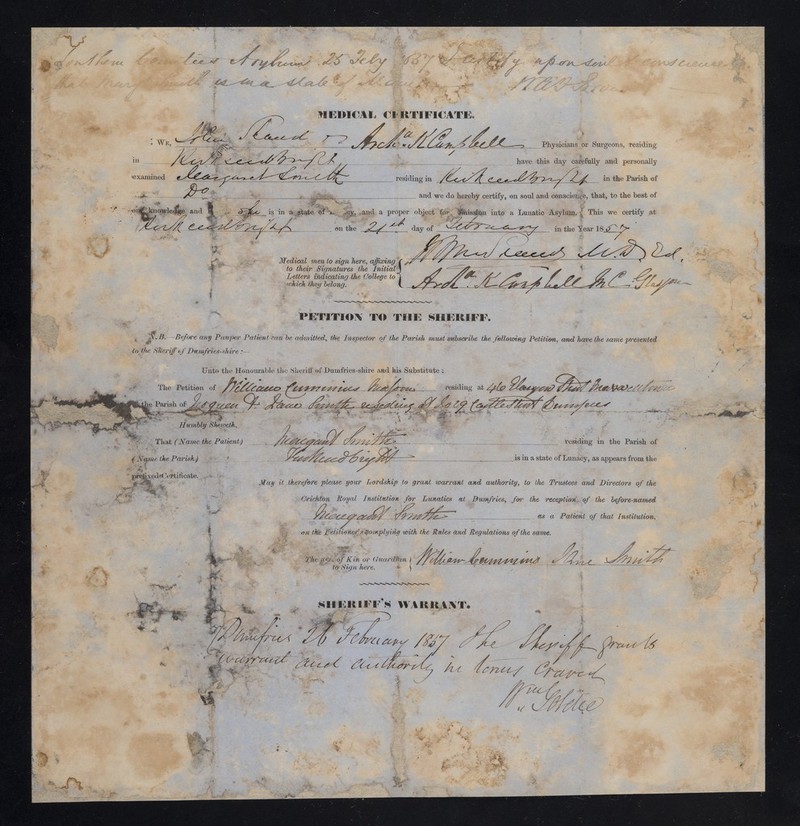 Southern Counties Asylum 25 Feby 1857 I certify upon soul & conscience
that Mary Smith is in a state of
MEDICAL CERTIFICATE.
We, John Shand & Archd. K Campbell Physicians or Surgeons, residing
in Kirkcudbright have this day carefully and personally
examined Margaret Smith residing in Kirkcudbright in the Parish of
Do and we do hereby certify, on soul and conscience, that, to the best of
knowledge and she is in a state of and a proper object for admission into a Lunatic Asylum. This we certify at
Kirkcudbright on the 21st day of February in the Year 1857
Medical men to sign here, affixing
to their Signatures the Initial
Letters indicating the College to
which they belong.
Shand M.D. Ed.
Archd. K Campbell M C Glasgow
PETITION TO THE SHERIFF.
N.B.—Before any Pauper Patient can be admitted, the Inspector of the Parish must subscribe the following Petition, and have the same presented
to the Sheriff of Dumfries-shire:—
Unto the Honourable the Sheriff of Dumfries-shire and his Substitute;
The Petition of William Cummins residing at 46 Street Maxwelltown
in the Parish of Troqueer & Jane Smith residing at No 9 Castle Street Dumfries
Humbly Sheweth,
That (Name the Patient) Margaret Smith residing in the Parish of
(Name the Parish) Kirkcudbright is in a state of Lunacy, as appears from the
prefixed Certificate.
May it therefore please your Lordship to grant warrant and authority, to the Trustees and Directors of the
Crichton Royal Institution for Lunatics at Dumfries, for the reception of the before-named
Margaret Smith as a Patient of that Institution,
on the Petitioner's complying with the Rules and Regulations of the same.
The next of Kin or Guardian
to Sign here.
William Cummins Jane Smith
SHERIFF'S WARRANT.
Dumfries 26 February 1857 The Sheriff grants
warrant and authority in terms craved
Wm Goldie